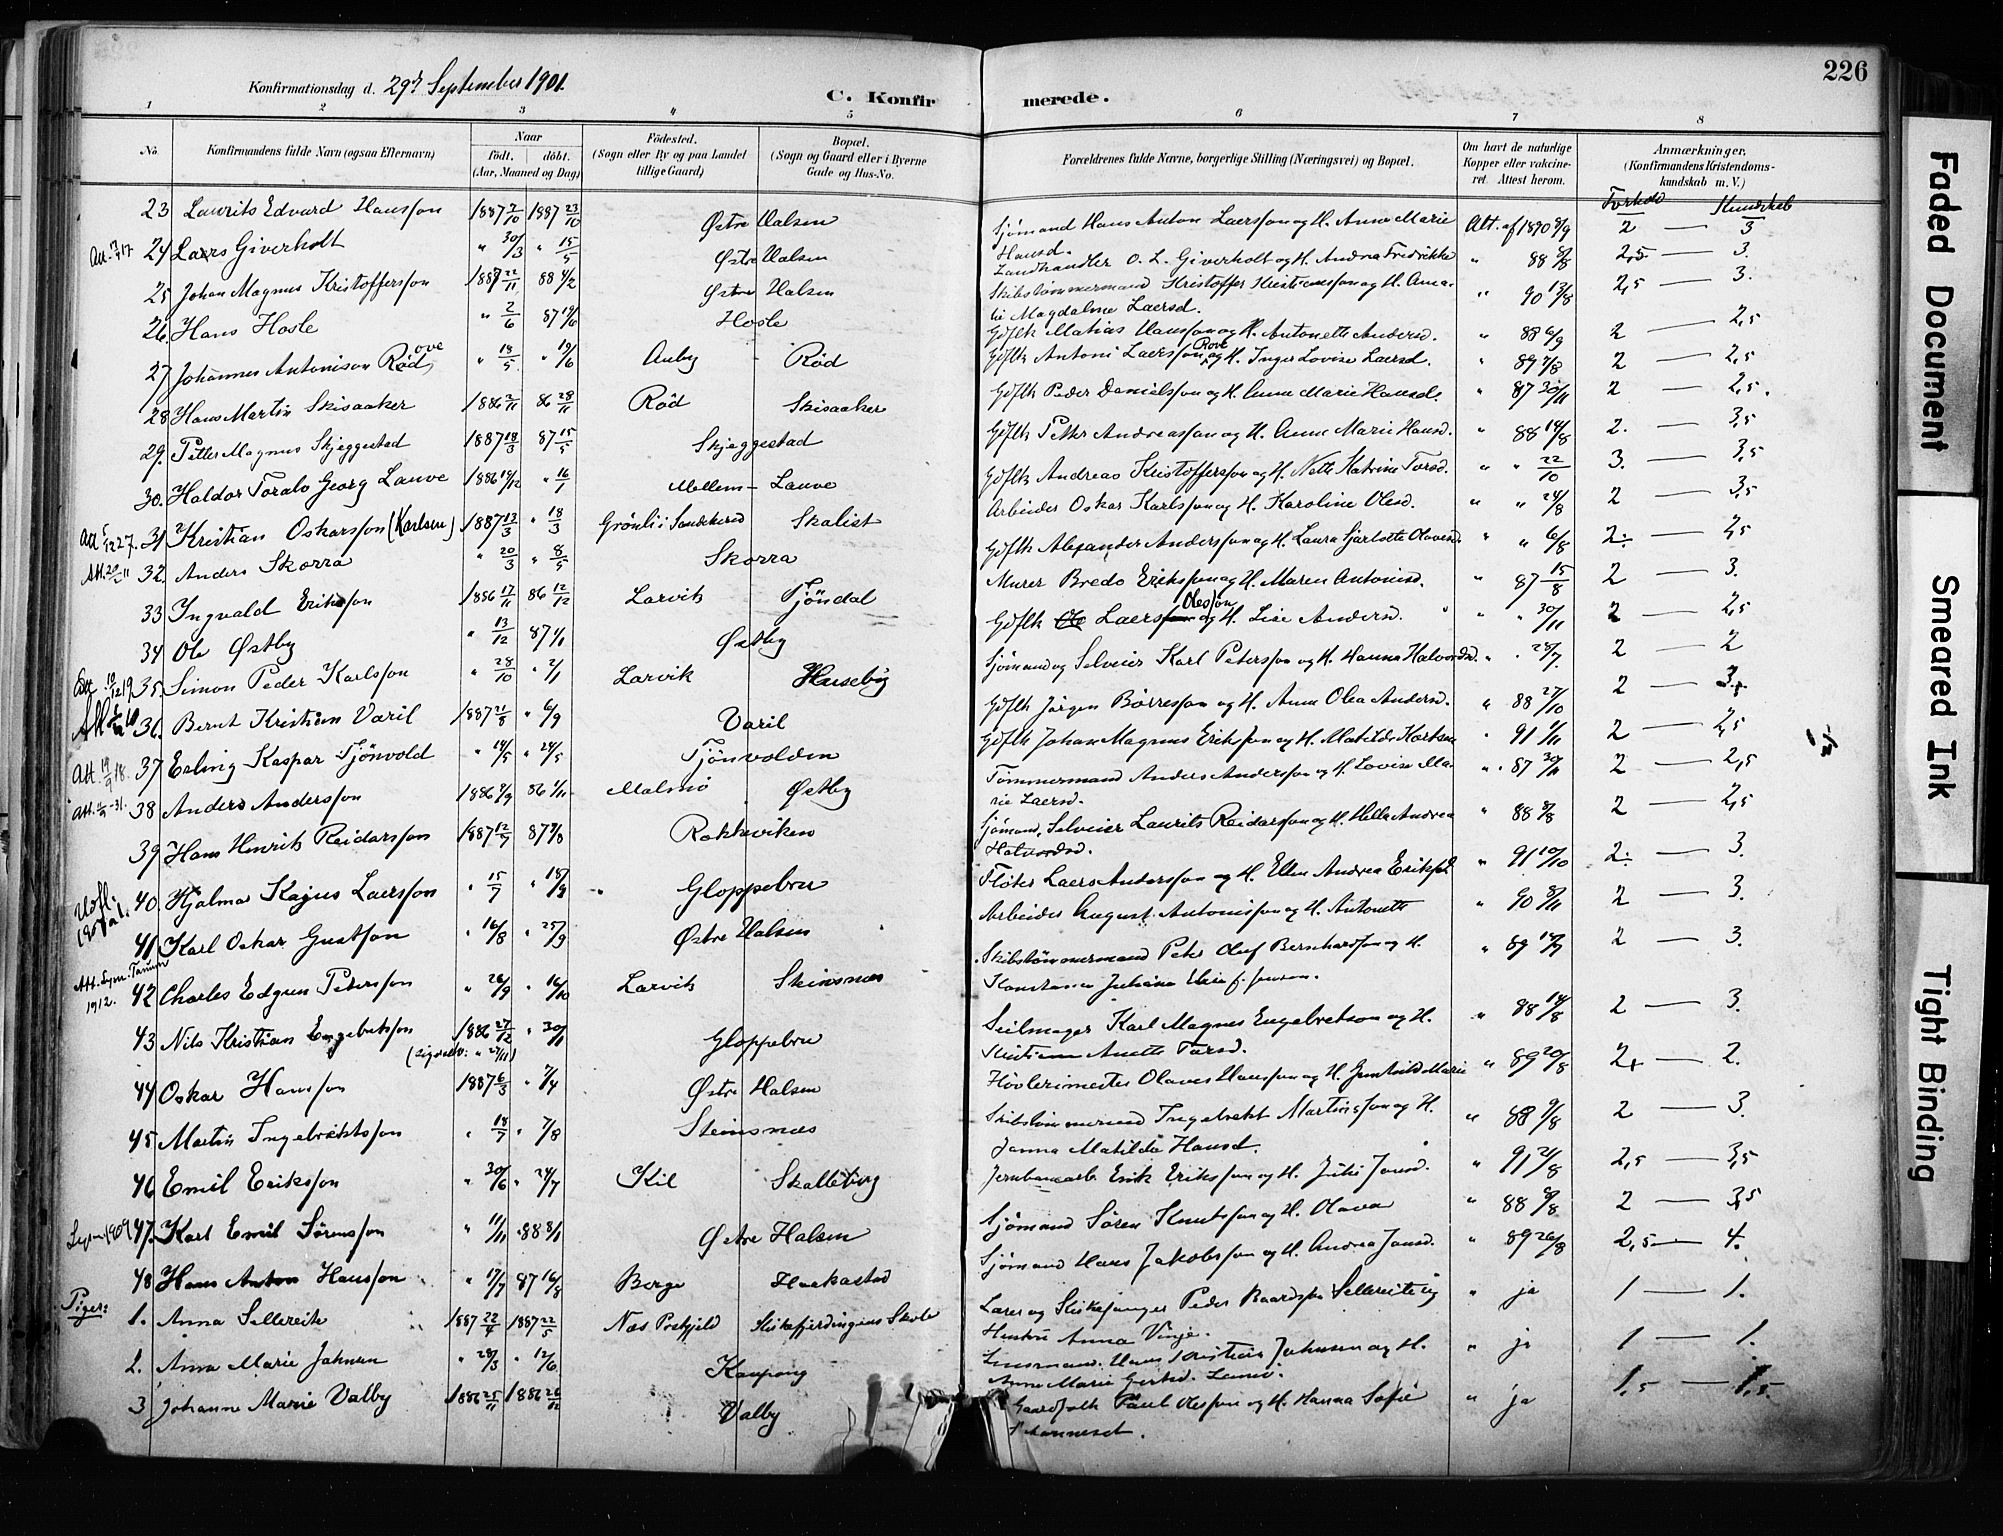 226
Konfirmationsdag d. 29de September 1901.
C. Konfirmerede.
1 2 3 4 5 6 7 8
No. Konfirmandens fulde Navn (ogsaa Efternavn) Naar födt. döbt. (Aar, Maaned og Dag) Födested. (Sogn eller By og paa Landet tillige Gaard) Bopæl. (Sogn og Gaard eller i Byerne Gade og Hus-No.) Forældrenes fulde Navne, borgerlige Stilling (Næringsvei) og Bopæl. Om havt de naturlige Kopper eller vakcineret. Attest herom. Anmærkninger, (Konfirmandens Kristendomskundskab m. V.)
Forhold Kundskab
23 Laurits Edvard Hansson 1887 2/10 1887 23/10 Østre Halsen Sjømand Hans Anton Laersson og H. Anne Marie Hansd. Att. af 1890 8/9 2 — 3
24 Laers Giverholt " 30/3 " 15/5 Østre Halsen Landhandler O. L. Giverholt og H. Andrea Fredrikke " 88 8/8 2,5 — 3.
25 Johan Magnus Kristoffersson 1887 22/11 88 4/2 Østre Halsen Skibstømmermand Kristoffer Kristiansson og H. Amalie Magdalene Laersd. " 90 13/8 2,5 — 3.
26. Hans Hosle " 2/6 87 19/6 Hosle Gdflk Matias Hansson og H. Antonette Andersd. " 88 6/9 2 — 2,5
27 Johannes Antonison Röd " 18/5 " 19/6 Auby Röd Gdflk Antoni Laersson og H. Inger Lovise Laersd. " 89 2/8 2 — 2,5
28 Hans Martin Skisaaker 1886 2/11 86 28/11 Röd Skisaaker Gdflk Peder Danielsson og H. Anne Marie Hansd. " 87 30/11 2 2,5.
29. Petter Magnus Skjeggestad 1887 18/3 87 15/5 Skjeggestad Gdflk Petter Andreasson og H. Anne Marie Hansd. " 88 14/8 2. — 3,5
30. Haldor Toralv Georg Lauve 1886 19/12 " 16/1 Mellem-Lauve Gdflk Andreas Kristoffersson og H. Nette Katrine Torsd. " " 22/10 3. — 3,5
31 Kristian Oskarsson (Karlsen) 1887 13/3 " 18/3 Grönli i Sandeherred Skalist Arbeider Oskar Karlsson og H. Karoline Olesd. " " 24/8 2 — 3,5
32. Anders Skorra " 20/3 " 8/5 Skorra Gdflk Alexander Andersson og H. Laura Sjarlotte Olavesd. " " 6/8 2. —
33 Ingvald Eriksson 1886 17/11 86 12/12 Larvik Tjöndal Murer Bredo Eriksson og H. Maren Antonisd. " 87 15/8 2 — 3.
34 Ole Østby " 13/12 87 1/1 Østby Gdflk Laers Olesson og H. Lise Andersd. " " 30/11 2 — 2,5
35. Simon Peder Karlsson " 28/10 " 2/1 Larvik Huseby Sjømand og Selveier Karl Petersson og H. Hanna Halvorsd. " " 28/7. 2 — 2
36. Bernt Kristian Varil 1887 21/8 " 6/9 Varil Gdflk Jörgen Börresson og H. Anne Olea Andersd. " 88 27/10 2 — 3.
37 Erling Kaspar Tjönvold " 14/5 " 24/5 Tjönvolden Gdflk Johan Magnus Eriksson og H. Matilde " 91 1/11 2 — 2,5
38 Anders Andersson 1886 2/9 86 1/11 Malmö Østby Tömmermand Anders Andersson og H. Lovise Marie Laersd. " 87 30/11 2 — 2,5
39 Hans Henrik Reidarsson 1887 12/7 87 7/8 Rakkeviken Sjømand, Selveier Laurits Reidarsson og H. Helle Andrea Halvordsd. " 88 8/8 2 — 2,5
40. Hjalmar Kajus Laersson " 15/7 " 18/9 Gloppebru Flöter Laers Andersson og H. Ellen Andrea Eriksd. " 91 10/10 2. — 3.
41 Karl Oskar Gustson " 16/8 " 25/9 Østre Halsen Arbeider August Antonisson og H. Antonette " 90 8/11 2 — 3.
42 Charles Edgren Petersson " 26/9 " 16/10 Larvik Steinsnæs Skibstömmermand Peter Oluf Bernhardsson og H. Konstanse Juliane " 89 2 — 3.
43 Nils Kristian Engebretsson 1886 27/12 " 30/1 Gloppebru Seilmager Karl Magnus Engebretson og H. Kristiane Anette Torsd. " 88 14/8 2 — 3.
44 Oskar Hansson 1887 6/3 " 7/4 Østre Halsen Hövlerimester Olaves Hansson og H. Marie " 89 20/8 2 — 2.
45 Martin Ingebriktsson " 18/7 " 7/8 Steinsnæs Skibstömmermand Ingebrekt Martinsson og H. Janna Matilda Hansd. " 88 9/8 2 — 3.
46 Emil Eriksson " 30/6 " 24/7 Kil Skalleberg Jernbanearb. Erik Eriksson og H. Julie Jansd. " 91 21/8 2,5 — 3,5
47. Karl Emil Sörensson " 11/11 " 88 8/1 Østre Halsen Sjömand Sören Knutsson og H. Olava " 88 8/8 2 — 3,5
48 Hans Anton Hansson " 17/7 87 16/8 Berge Haakestad Sjömand Hans Jakobsson og H. Andrea Jansd. " 89 26/8 2,5 — 4.
Piger:
1. Anna Sellereite 1887 22/4 1887 22/5 Næs Prstgjeld Skole Lærer og Kirkesanger Peder Baardson Sellereite og Hustru Anna Vinje. " ja 1 — 1.
2. Anne Marie Johnsen " 28/3 " 12/6 Kaupang Hans Kristian Johnsen og H. Anne Marie " ja 1 — 1.
3 Johanne Marie Valby 1886 25/11 1886 26/12 Valby Gaardfolk Paul Olesson og H. Hanna Sofie Johannesd. " ja 1,5 — 1,5.
Faded Document
Smeared Ink
Tight Binding